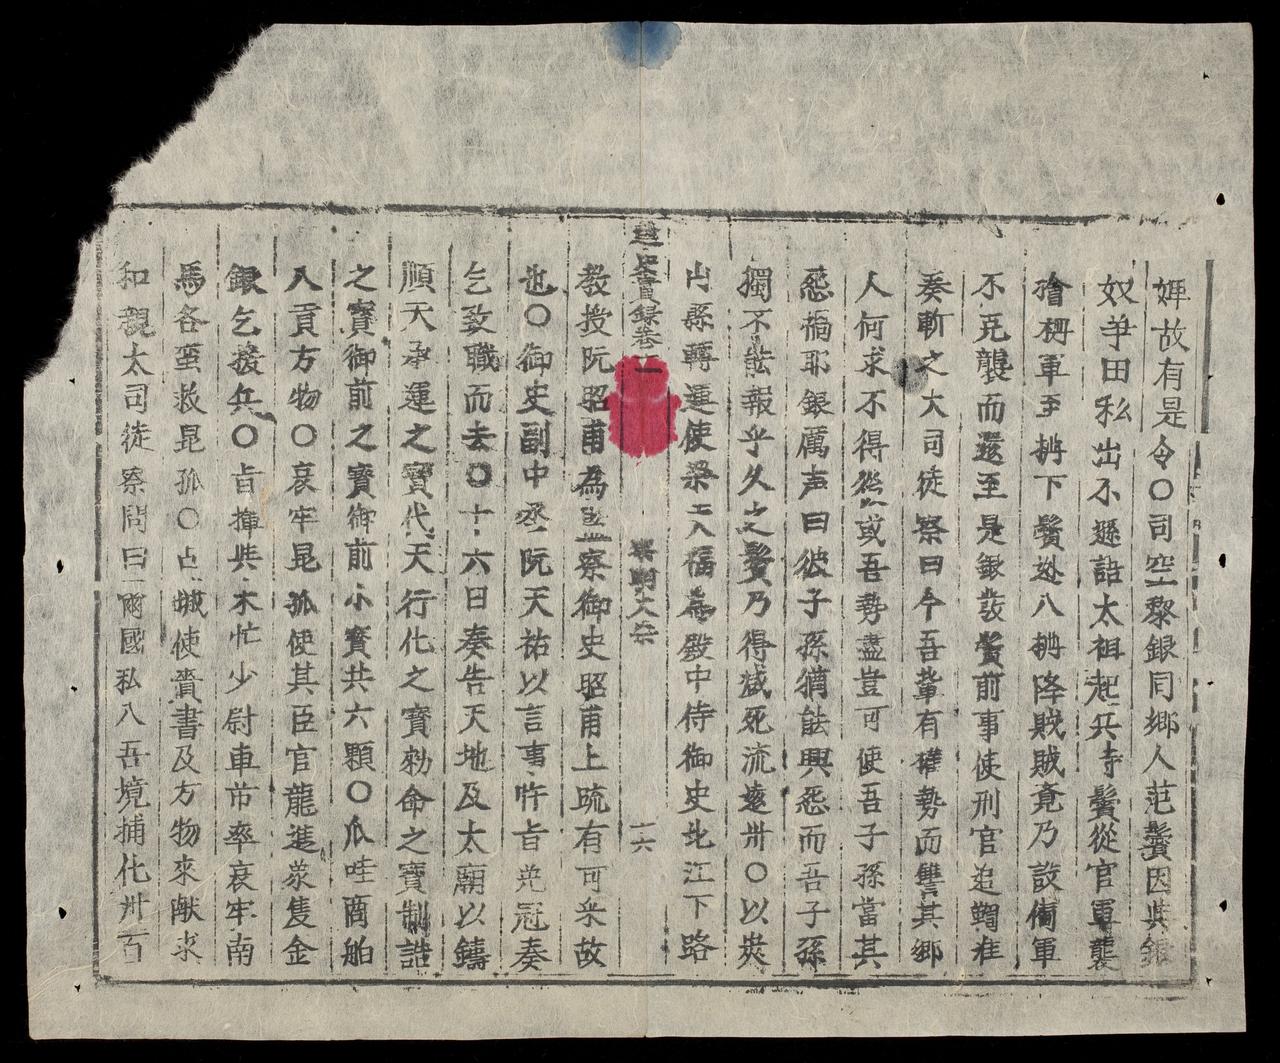 婢故有是令〇司空黎銀同郷人范鬢因與銀
奴爭田私出不遜語太祖起兵寺鬢從官軍襲
獪柵軍至柵下鬢迯入柵降賊賊竟乃設備軍
不克襲而還至是銀發鬢前事使刑官追鞫准
奏斬之大司徒察曰今吾輩有權勢而讐其郷
人何求不得然或吾勢盡豈可使吾子孫當其
怨禍耶銀厲声曰彼子孫猶能興怨而吾子孫
獨不能報乎久之鬢乃得减死流遠州〇以夾
山縣轉運使梁天福為殿中侍御史北江下路
越史實錄卷十一
黎朝太宗
十六
教授阮昭甫為監察御史昭甫上疏有可采故
也〇御史副中丞阮天祐以言事忤旨免冠奏
乞致職而去〇十六日奏告天地及太廟以鑄
順天承運之寶代天行化之寶勑命之寶制誥
之寶御前之寶御前小寶共六顆〇爪哇商舶
入貢方物〇哀牢昆孤使其臣官龍進象隻金
銀乞援兵〇旨揮些木忙少尉車帀率哀牢南
馬各蛮救昆孤〇占城使賫書及方物來献求
和親太司徒察問曰爾國私入吾境捕化州百